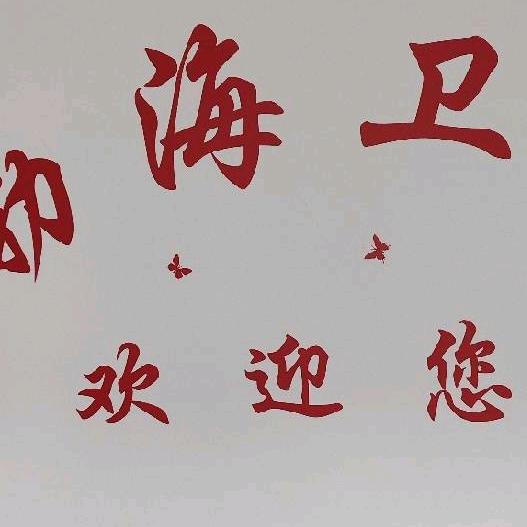 海卫
欢迎您